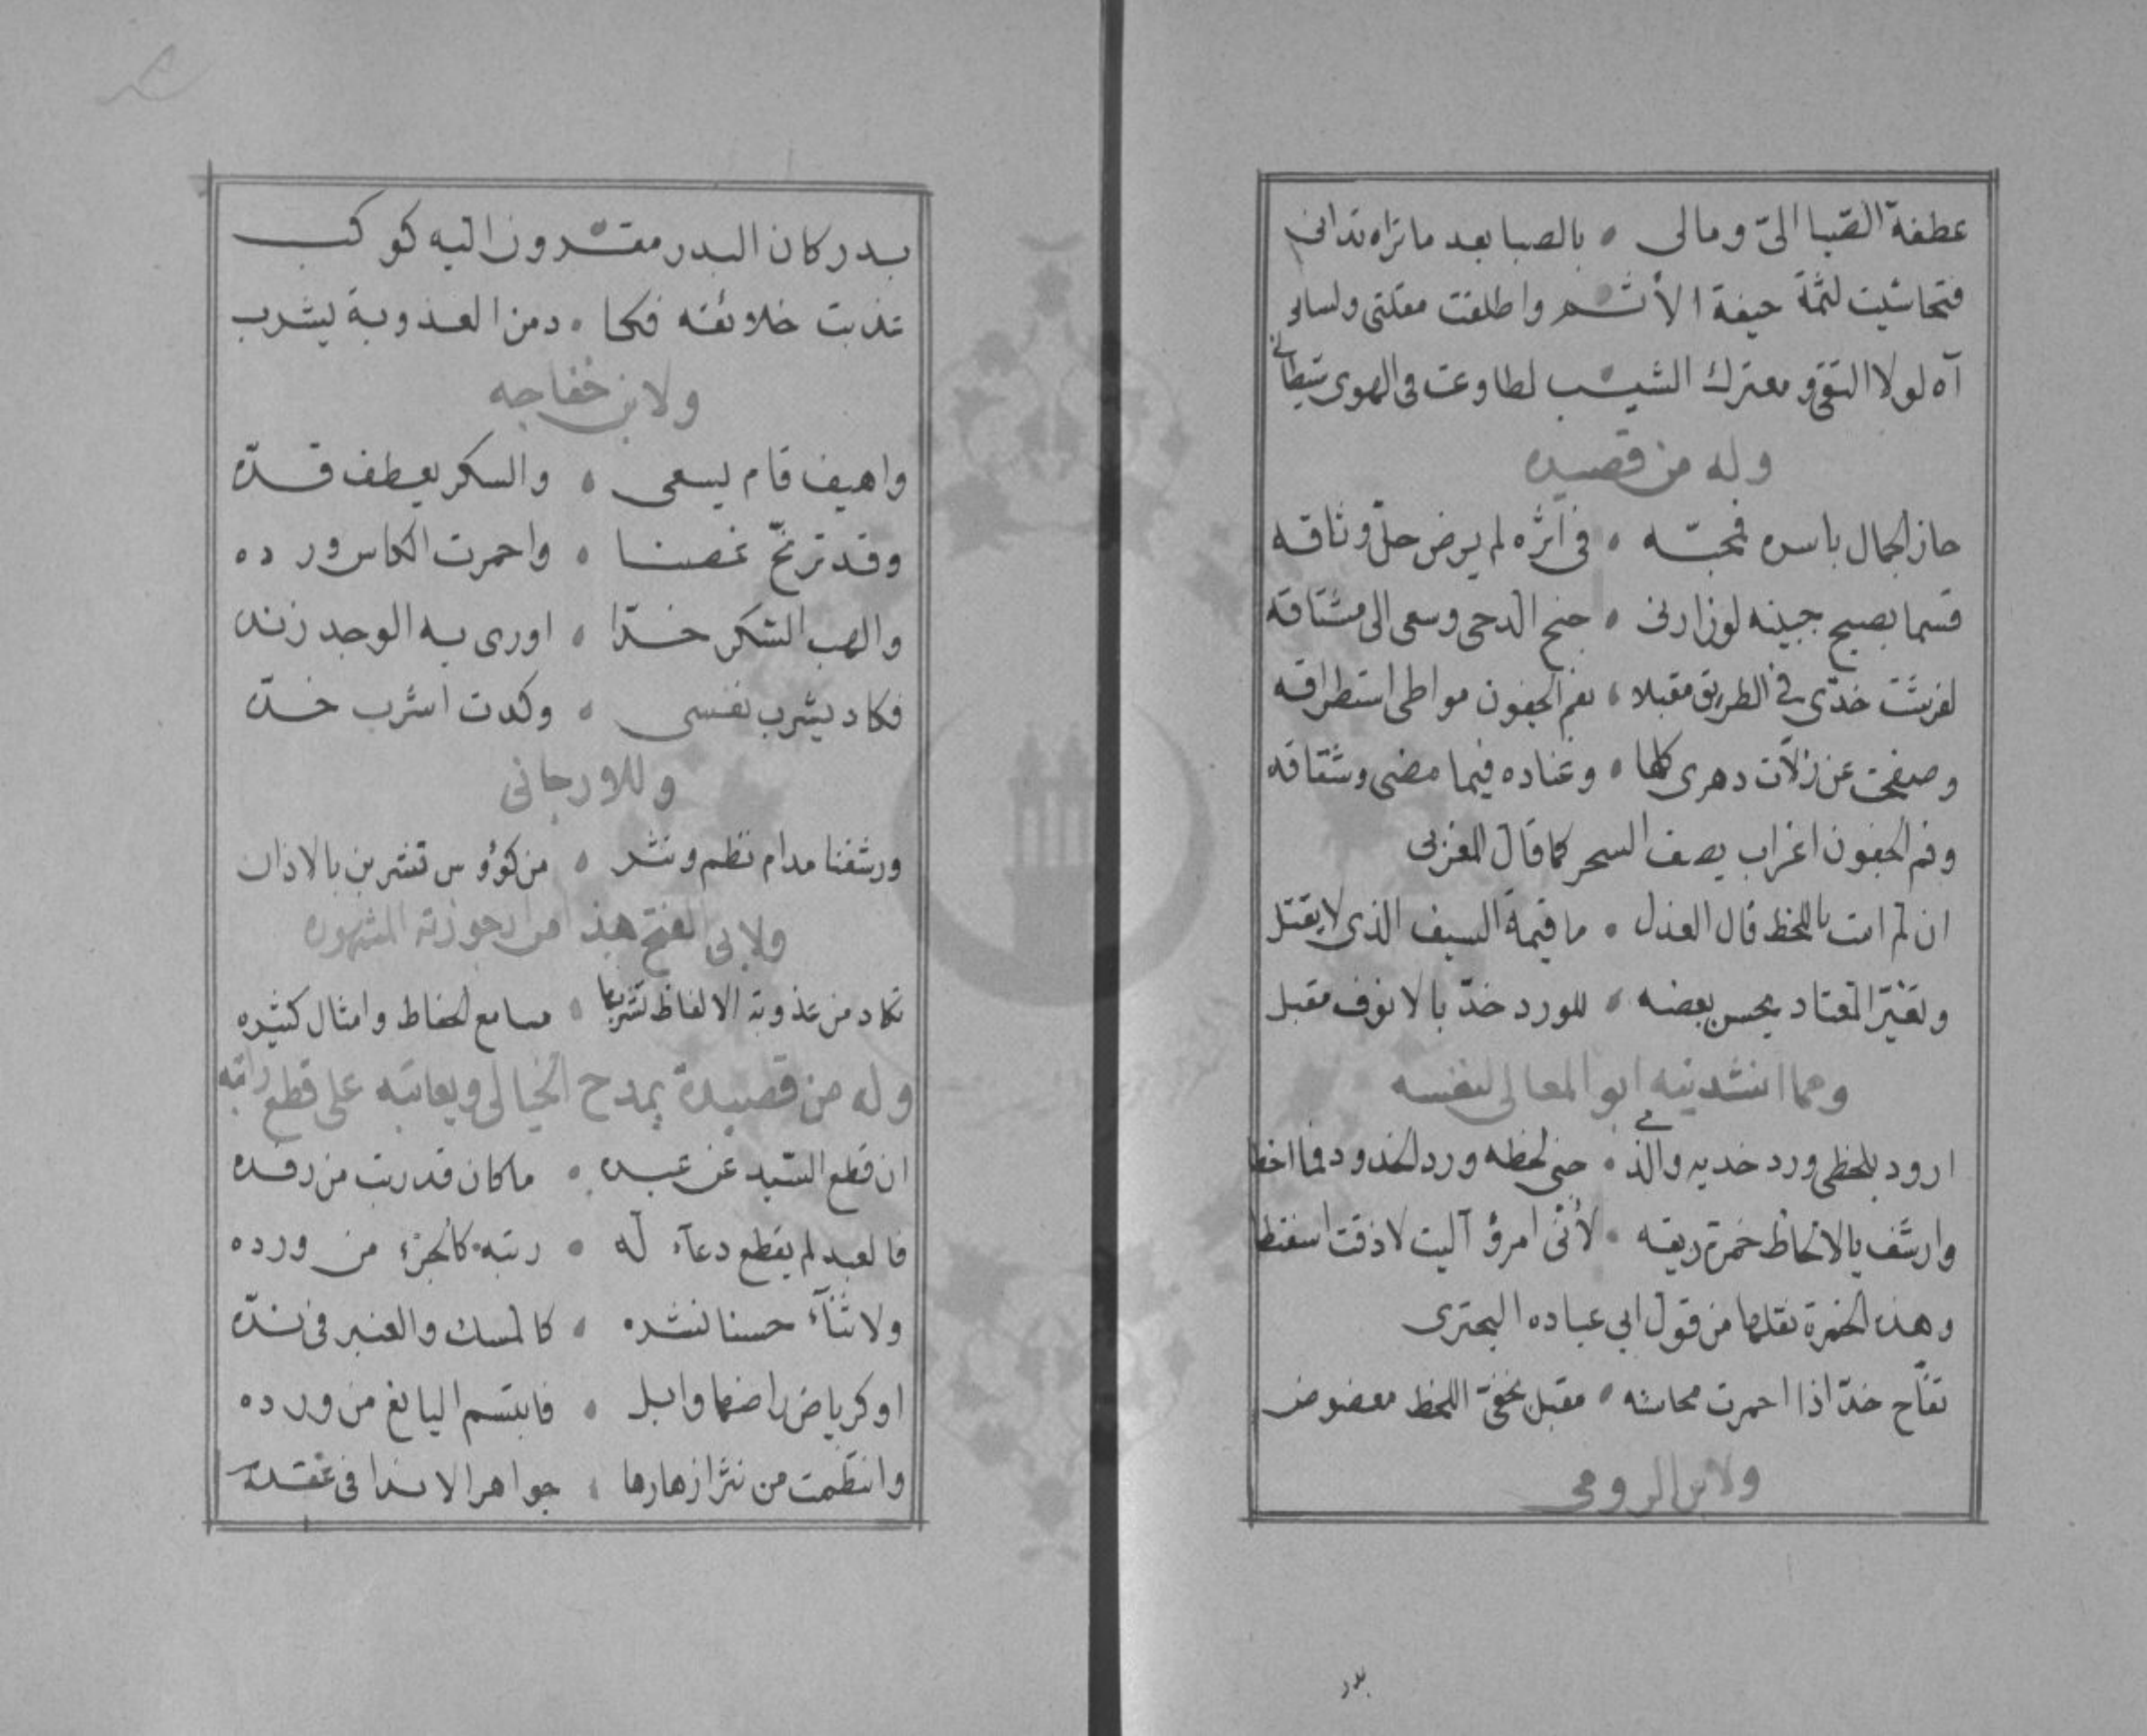 عطفة الصبا الىّ ومالى • بالصبا بعد ما تراه تدانى
فتحاشيت لثمة خيفة الأثـم واطلقت مقلتى ولسانى
آه لولا التقى ومعترك الشيـب لطاوعت فى الهوى شيطانى
وله من قصيده
حاز الجمال باسره فمحبّه • فى أثره لم يرض حلّ وثاقه
قسما بصبح جبينه لو زارنى • جنح الدجى وسعى الى مشتاقه
لفرشت خدّى فى الطريق مقبلا • بفم الجفون مواطى استطراقه
وصفحت عن زلّات دهرى كلها • وعناده فيما مضى وشقاقه
وفم الجفون اغراب يصف السحر كما قال المغربى
ان لم امت باللحظ قال العذل • ما قيمة السيف الذى لا يقتل
وتغيّر المعتاد يحسن بعضه • للورد خدّ بالانوف مقبل
ومما انشدنيه ابو المعالى لنفسه
ارود بلحظى ورد خديه والذى • جنى لحظه ورد الخدود فما اخطا
وارشف بالالحاظ خمرة ريقه • لأننى امرؤ آليت لا ذقت اسفنطا
وهذه الخمرة نقلها من قول ابى عباده البحترى
تفّاح خدّ اذا احمرت محاسنه • مقبل بخفىّ اللحظ معضوض
ولابن الرومى
بدر
بدر كان البدر مقـرون اليه كوكب
عذبت خلائقه فكا • د من العذوبة يشرب
ولابن خفاجه
واهيف قام يسعى • والسكر يعطف قـدّه
وقد ترنّح غصنا • واحمرت الكاس ورده
والهب السكر خـدّا • اورى به الوجد زنده
فكاد يشرب نفسى • وكدت اشرب خـدّه
وللارجانى
ورشفنا مدام نظم ونثر • من كؤوس تشربن بالاذان
ولابى الفتح هذا من ارجوزته المشهوره
تكاد من عذوبة الالفاظ تشربها • مسامع الحفاظ وامثال كثيره
وله من قصيدة يمدح الخيالى ويعاتبه على قطع راتبه
ان قطع السّيد عن عبده • ما كان قد ربت من رفده
فالعبد لم يقطع دعآء له • رتبه كالجزء من ورده
ولا ثنآء حسنا نشره • كالمسك والعنبر فى ندّه
او كرياض راضها وابل • فابتسم اليانع من ورده
وانتظمت من نثر ازهارها • جواهر الاندا فى عقده